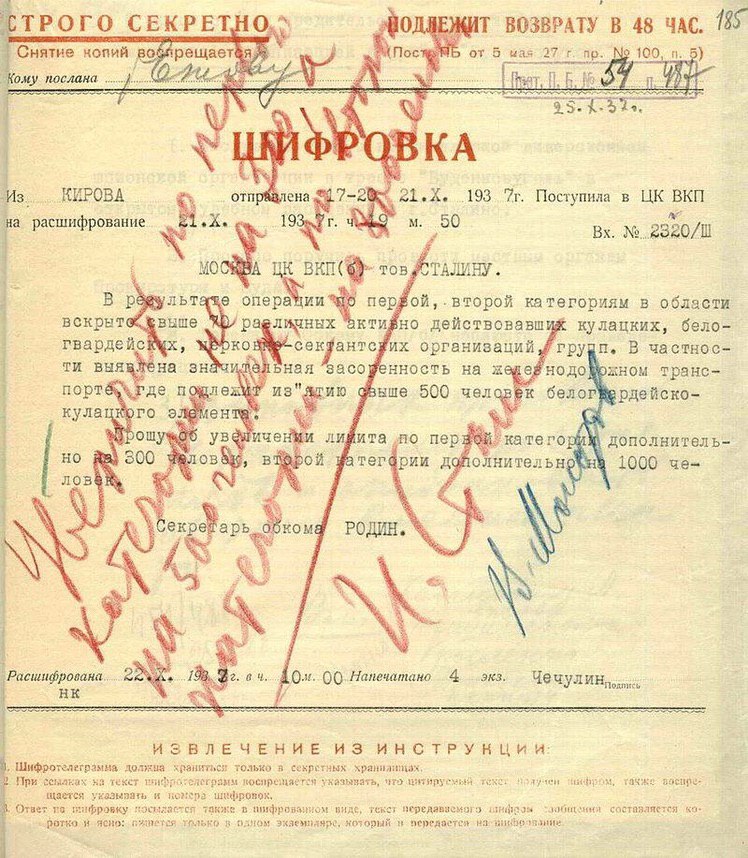 185
СТРОГО СЕКРЕТНО
ПОДЛЕЖИТ ВОЗВРАТУ В 48 ЧАС.
Снятие копий воспрещается
(Пост. ПБ от 5 мая 27 г. пр. № 100, п. 5)
Кому послана Ежову
Прот. П. Б. № 54 п. 487
25.X.37г.
ШИФРОВКА
Из КИРОВА отправлена 17-20 21.X. 1937г. Поступила в ЦК ВКП
на расшифрование 21.X. 1937г. ч. 19 м. 50
Вх. № 2320/Ш
МОСКВА ЦК ВКП(б) тов. СТАЛИНУ.
В результате операции по первой, второй категориям в области
вскрыто свыше 70 различных активно действовавших кулацких, бело-
гвардейских, церковно-сектантских организаций, групп. В частнос-
ти выявлена значительная засоренность на железнодорожном транс-
порте, где подлежит из"ятию свыше 500 человек белогвардейско-
кулацкого элемента.
Прошу об увеличении лимита по первой категории дополнитель-
но на 300 человек, второй категории дополнительно на 1000 че-
ловек.
Секретарь обкома РОДИН.
Увеличить по первой
категории не на 300, а
на 500 человек, а по второй
категории – на 800 человек
И. Сталин
В. Молотов
Расшифрована 22.X. 1937г. в ч. 10 м. 00 Напечатано 4 экз. Чечулин Подпись
нк
ИЗВЛЕЧЕНИЕ ИЗ ИНСТРУКЦИИ:
1. Шифротелеграмма должна храниться только в секретных хранилищах.
2. При ссылках на текст шифротелеграмм воспрещается указывать, что цитируемый текст получен шифром, также воспре-
щается указывать и номера шифровок.
3. Ответ на шифровку посылается также в шифрованном виде, текст передаваемого шифром сообщения составляется ко-
ротко и ясно; пишется только в одном экземпляре, который и передается на шифрование.